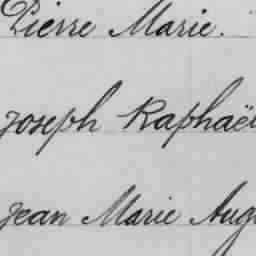 Pierre Marie.
Joseph Raphaël
Jean Marie Aug